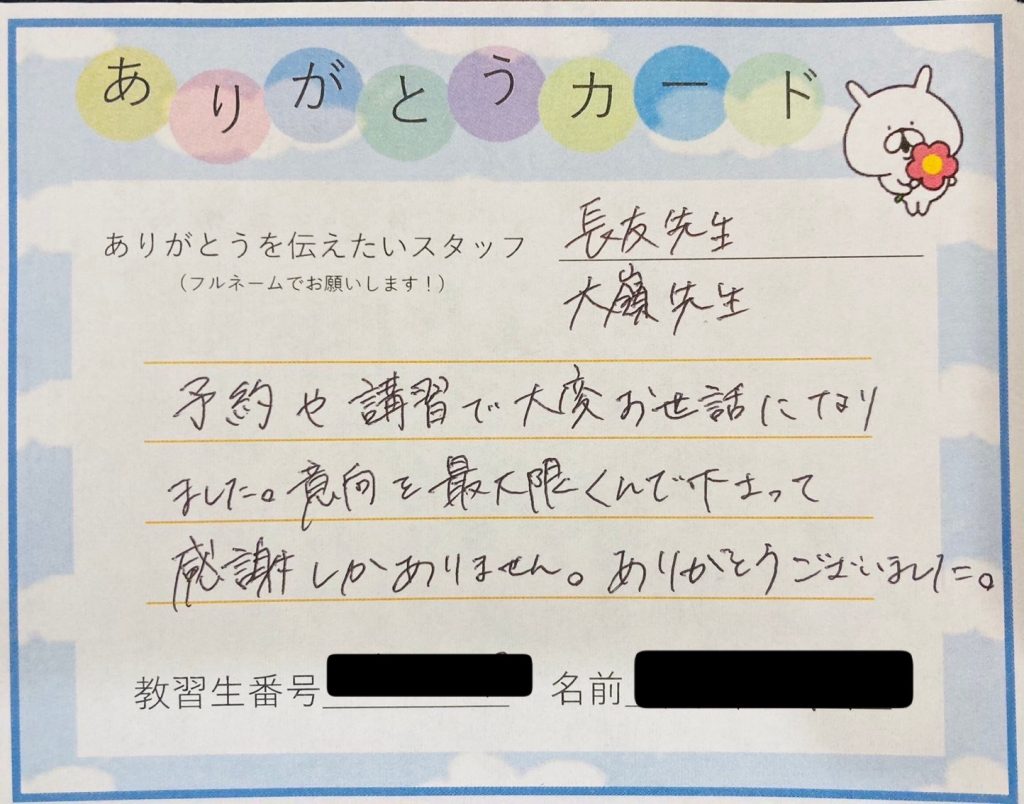 ありがとうカード
ありがとうを伝えたいスタッフ 長友先生
(フルネームでお願いします!) 大嶺先生
予約や講習で大変お世話になり
ました。意向を最大限くんで下さって
感謝しかありません。ありがとうございました。
教習生番号 名前